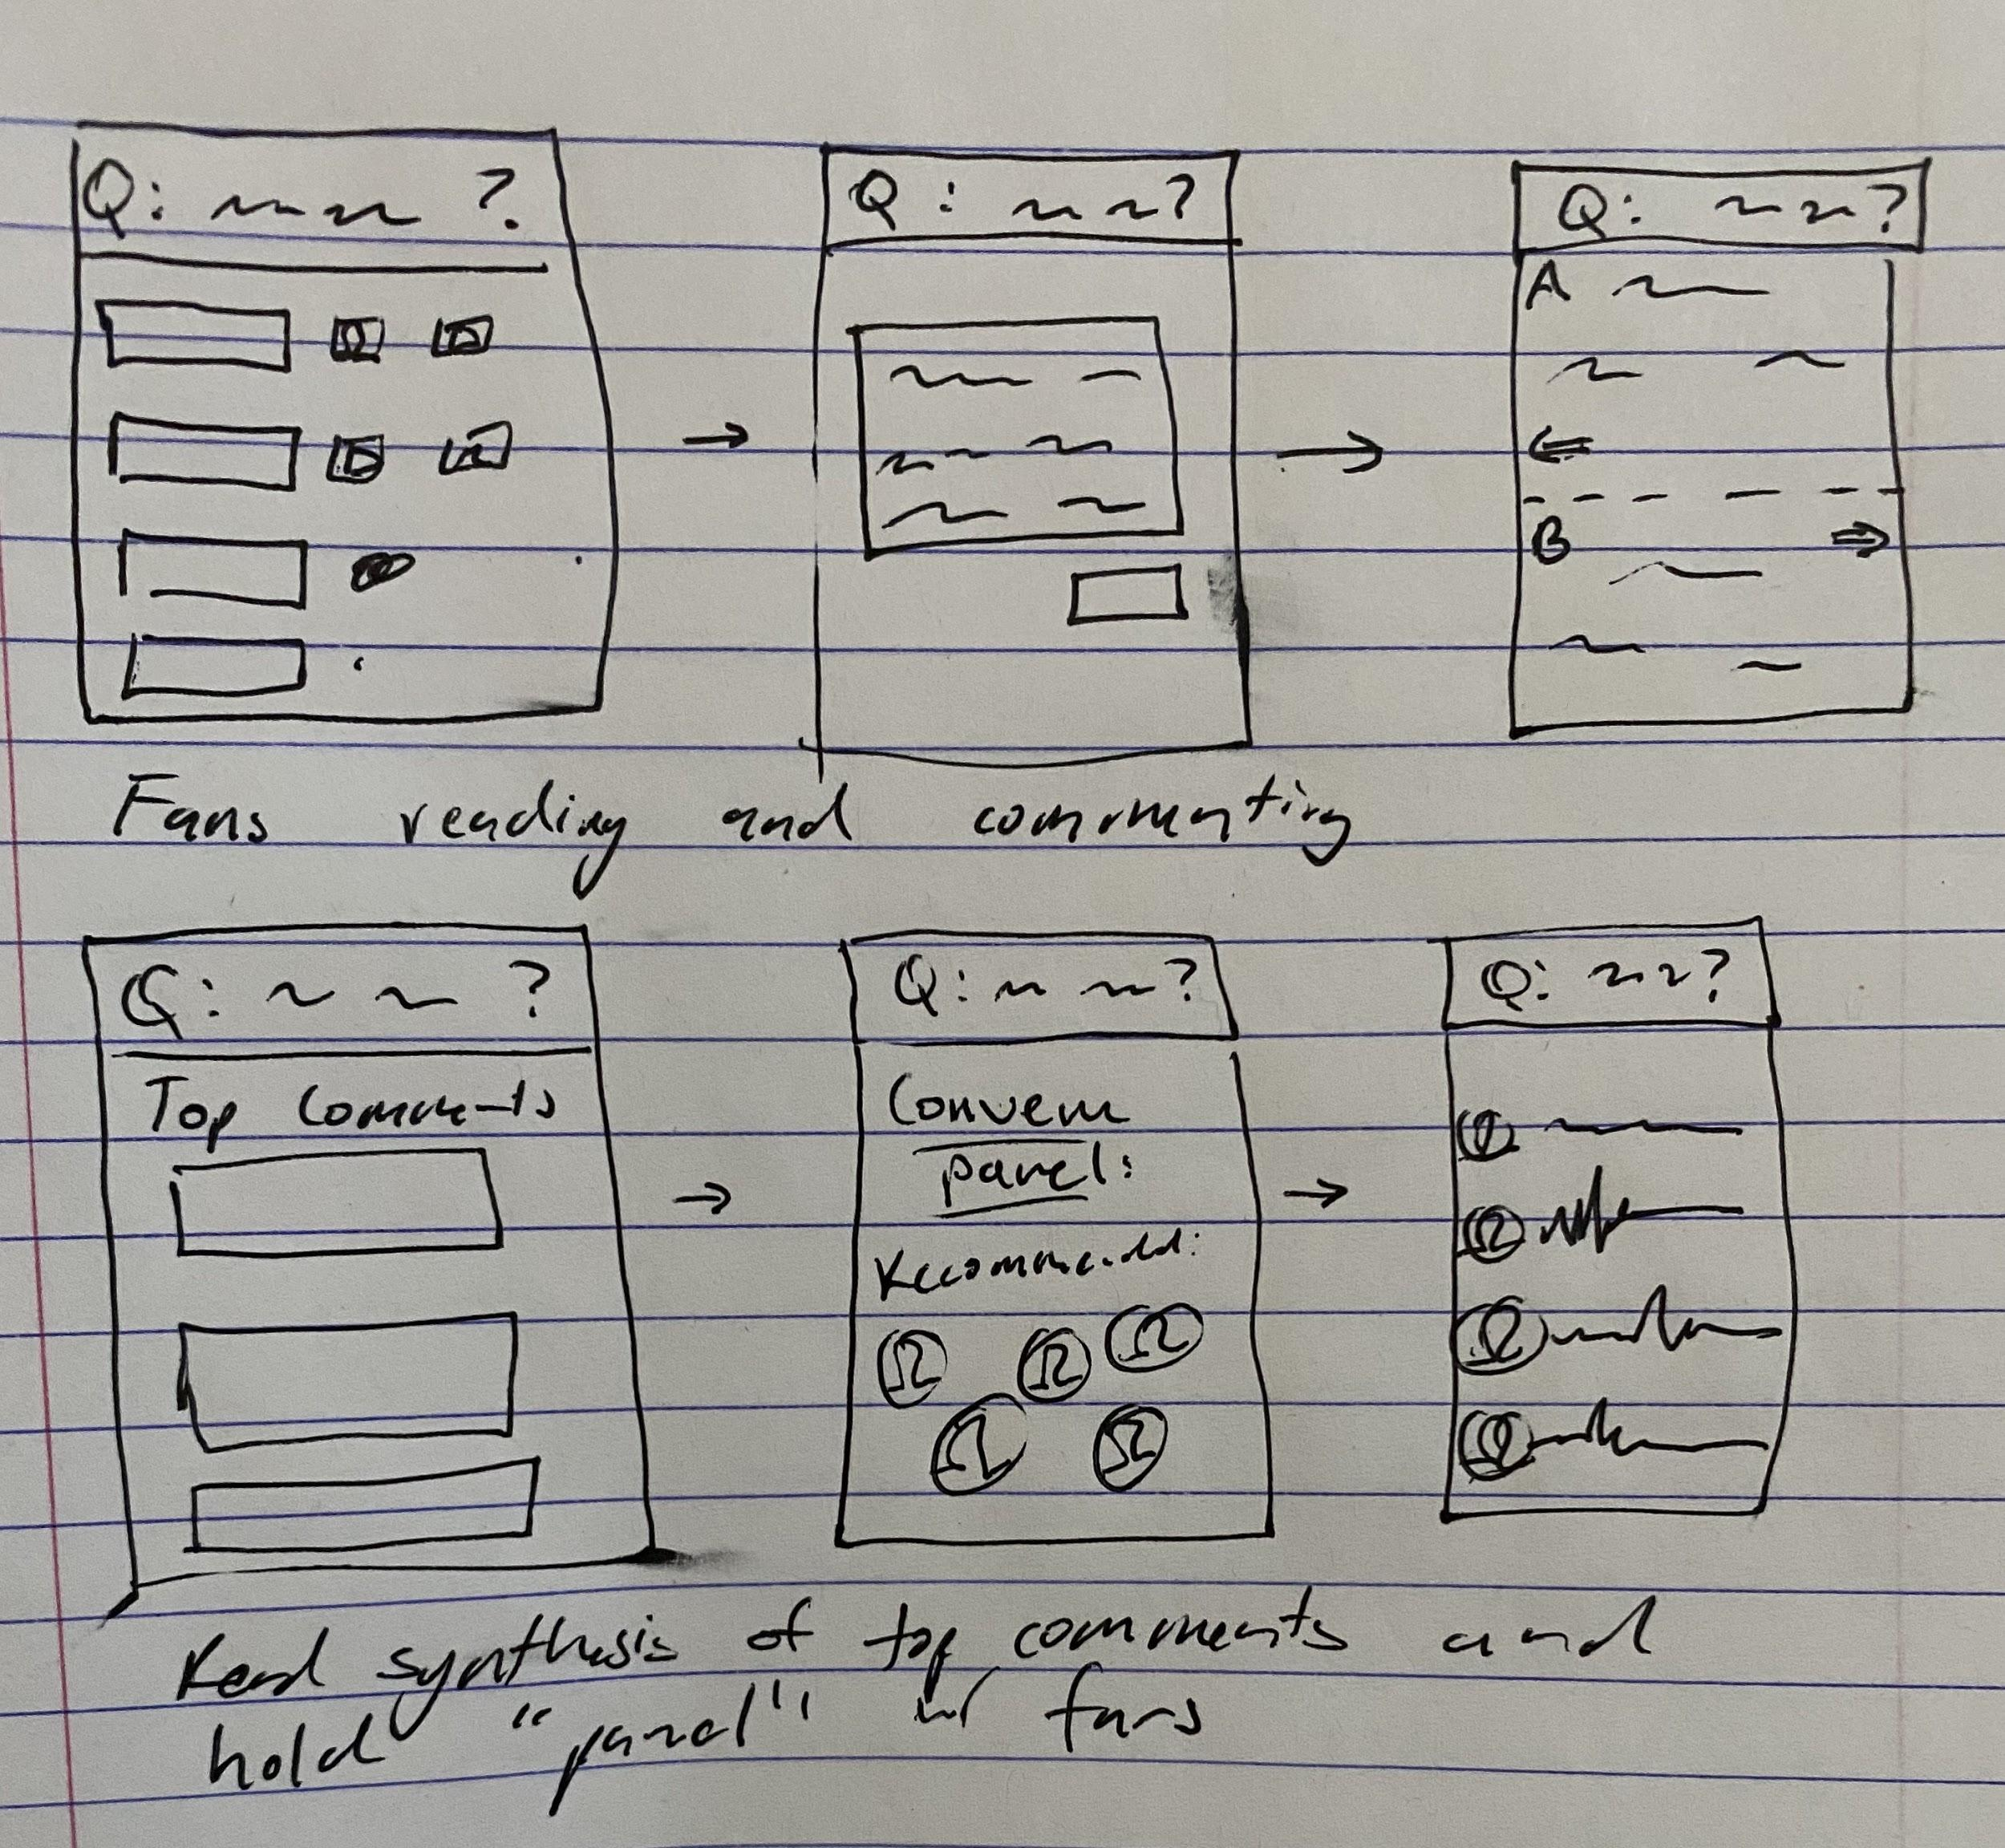 Q: ?
Q: ?
Q: ?
A
B
Fans reading and commenting
Q: ?
Top Comments
Q: ?
Convene
panel:
Recommended:
Q: ?
Read synthesis of top comments and
hold "panel" w/ fans